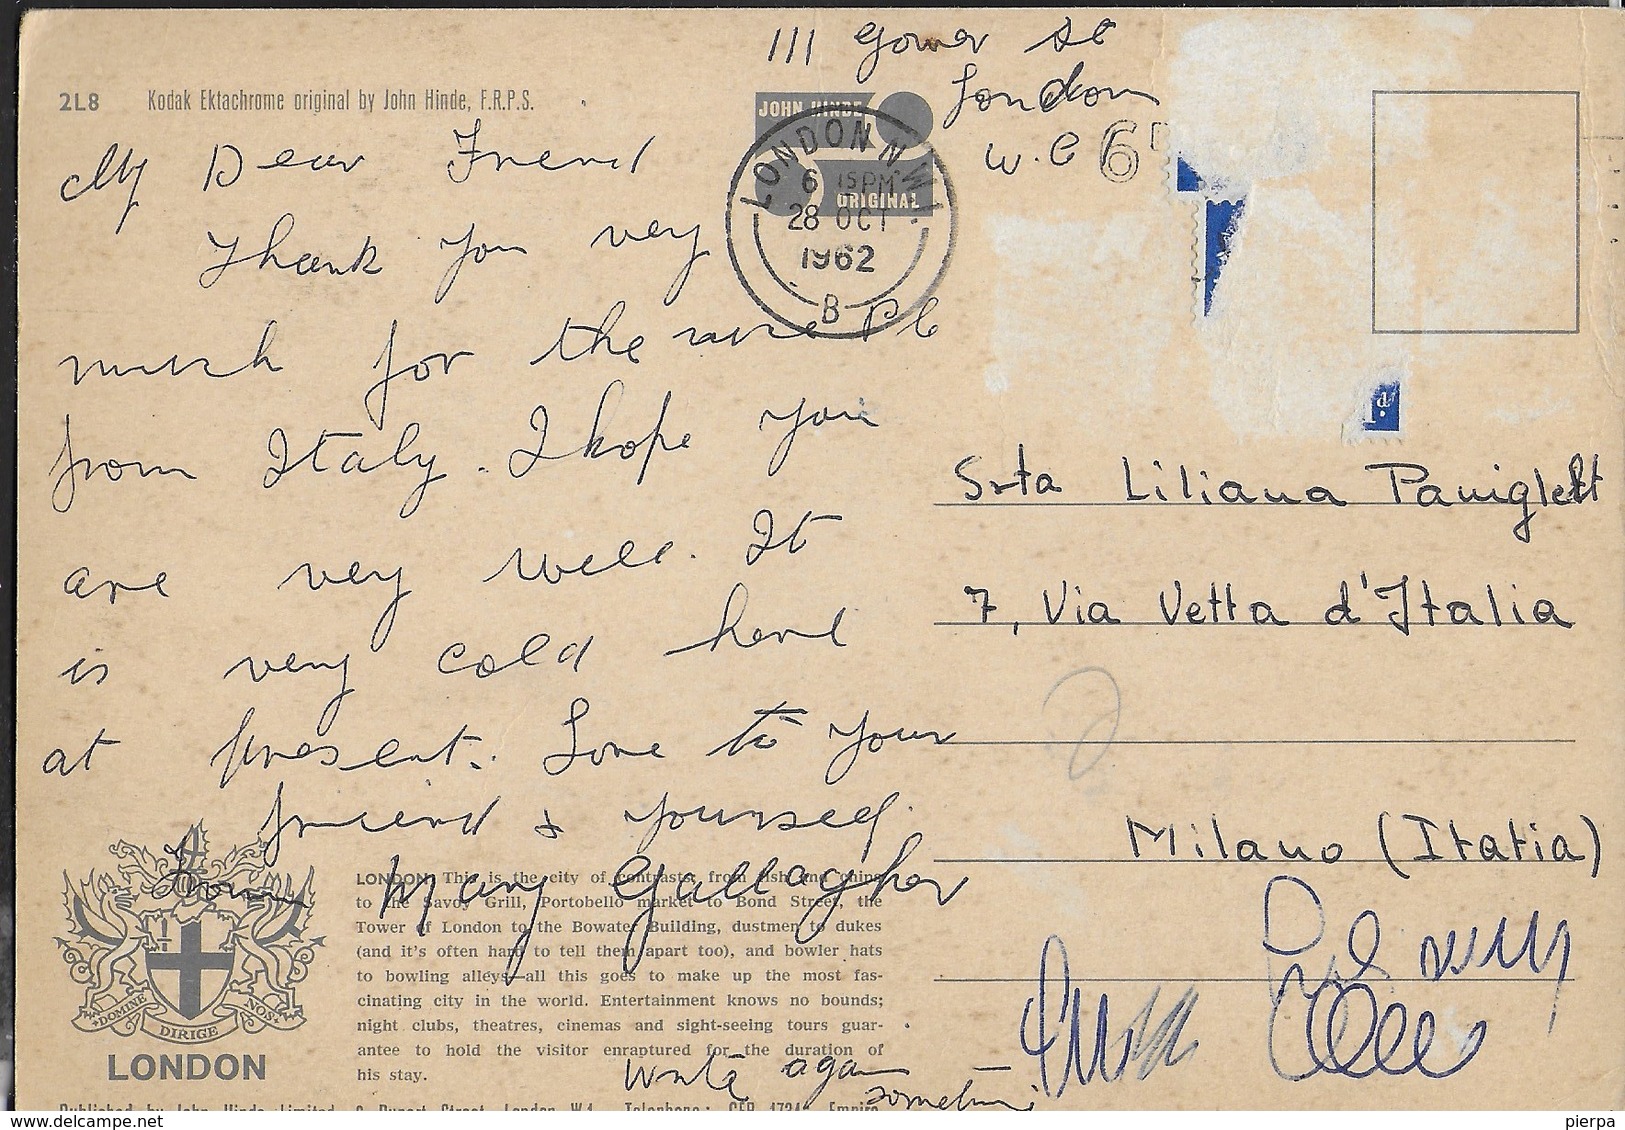 111 Gower St
London
W.C
2L8 Kodak Ektachrome original by John Hinde, F.R.P.S.
JOHN HINDE
ORIGINAL
LONDON N.W.1.
6 15 PM
28 OCT
1962
B
6D
My Dear Friend
Thank you very
much for the nice P C
from Italy. I hope you
are very well. It
is very cold here
at present. Love to your
friend & yourself
from Mary Gallagher
Write again
sometime
d.
Srta Liliana Paniglett
7, Via Vetta d'Italia
Milano (Italia)
DOMINE DIRIGE NOS
LONDON
LONDON This is the city of contrasts; from fish and chips
to the Savoy Grill, Portobello market to Bond Street, the
Tower of London to the Bowater Building, dustmen to dukes
(and it's often hard to tell them apart too), and bowler hats
to bowling alleys—all this goes to make up the most fas-
cinating city in the world. Entertainment knows no bounds;
night clubs, theatres, cinemas and sight-seeing tours guar-
antee to hold the visitor enraptured for the duration of
his stay.
Published by John Hinde Limited, 6 Rupert Street, London W.1. Telephone: GER 1734
pierpa